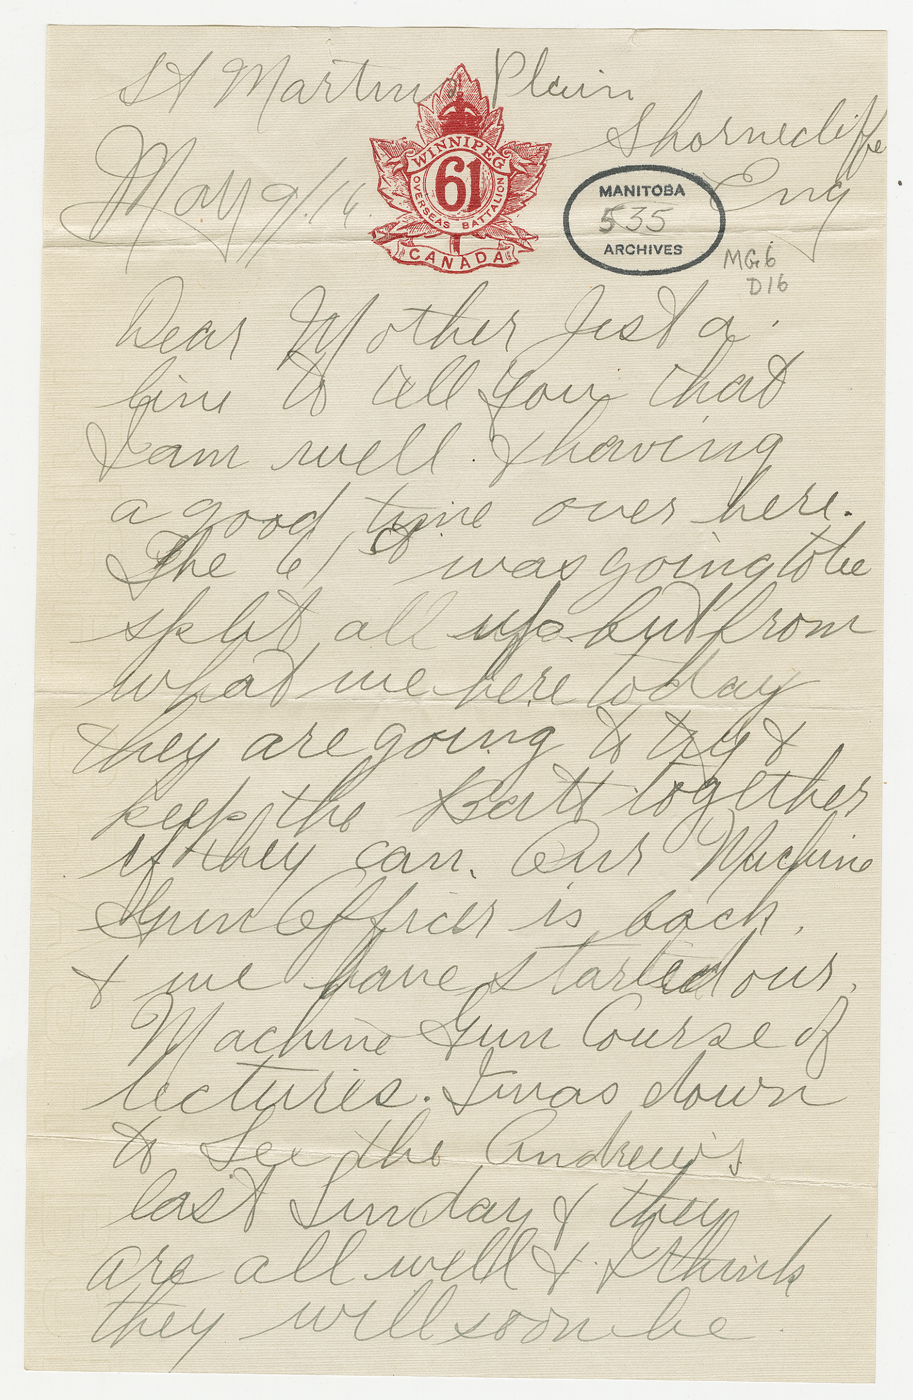 St Martins Plain
Shornecliffe
May 9/16.
Eng
WINNIPEG
61
OVERSEAS BATTALION
CANADA
MANITOBA
535
ARCHIVES
MG6
D16
Dear Mother Just a
line to tell you that
I am well & having
a good time over here.
The 61st was going to be
split all up but from
what we here today
they are going to try &
keep the Batt together
if they can. Our Machine
Gun Officer is back.
& we have started our
Machine Gun Course of
lectures. I was down
to See the Andrews
last Sunday & they
are all well & I think
they will soon be